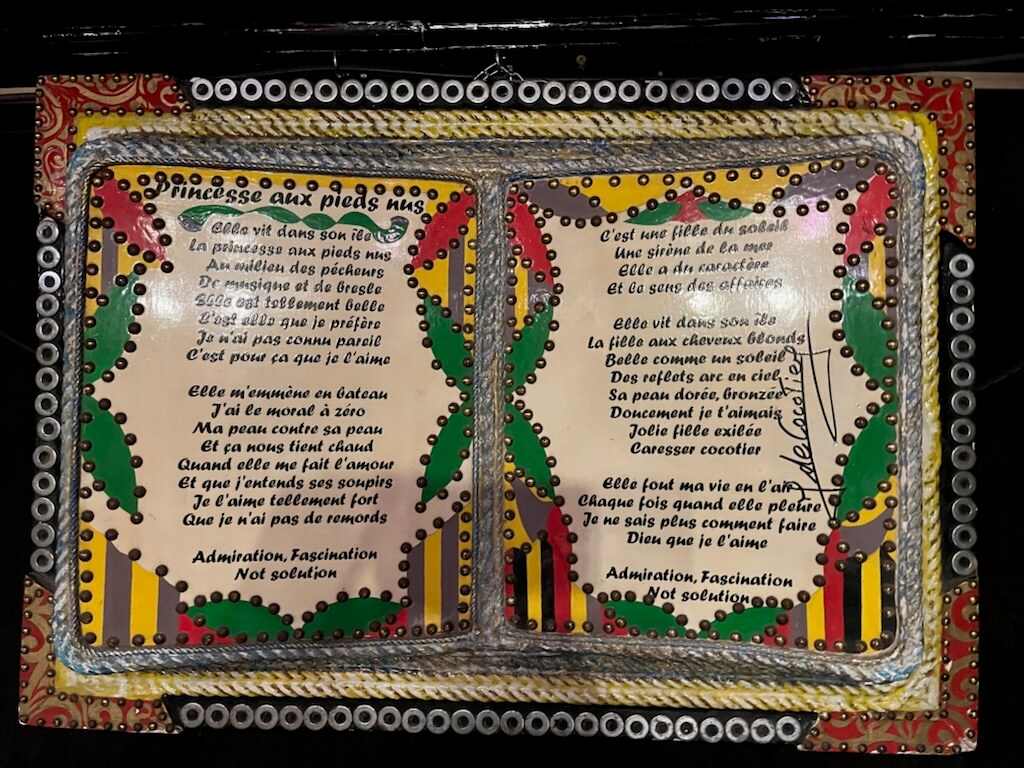 Princesse aux pieds nus
Elle vit dans son île
La princesse aux pieds nus
Au milieu des pécheurs
De musique et de bresle
Elle est tellement belle
C'est elle que je préfère
Je n'ai pas connu pareil
C'est pour ça que je l'aime
Elle m'emmène en bateau
J'ai le moral à zéro
Ma peau contre sa peau
Et ça nous tient chaud
Quand elle me fait l'amour
Et que j'entends ses soupirs
Je l'aime tellement fort
Que je n'ai pas de remords
Admiration, Fascination
Not solution
C'est une fille du soleil
Une sirène de la mer
Elle a du caractère
Et le sens des affaires
Elle vit dans son île
La fille aux cheveux blonds
Belle comme un soleil
Des reflets arc en ciel
Sa peau dorée, bronzée
Doucement je t'aimais
Jolie fille exilée
Caresser cocotier
Elle fout ma vie en l'air
Chaque fois quand elle pleure
Je ne sais plus comment faire
Dieu que je l'aime
Admiration, Fascination
Not solution